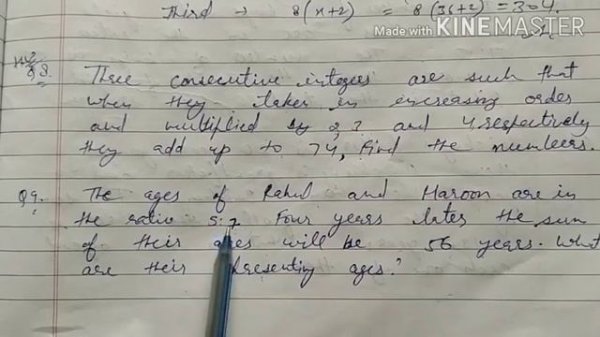 Third → 8(x+2) = 8(36+2) = 304.
Made with KINEMASTER
Q8. Three consecutive integers are such that
when they taken in increasing order
and multiplied by 2 3 and 4 respectively
they add up to 74, find the numbers.
Q9. The ages of Rahul and Haroon are in
the ratio 5:7 Four years later the sum
of their ages will be 56 years. What
are their presenting ages?